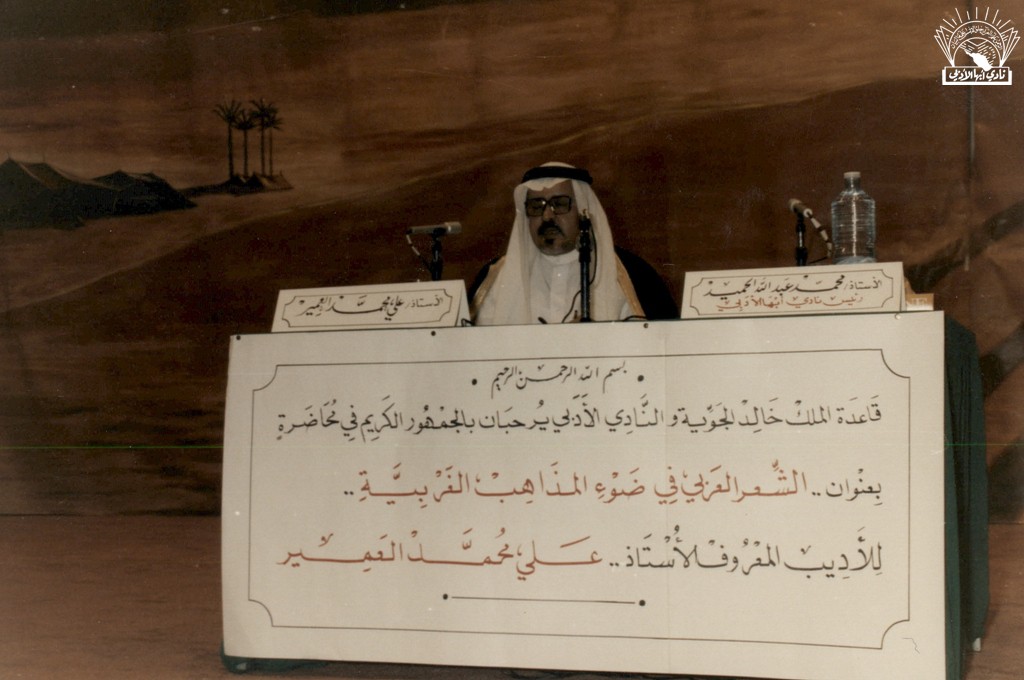 نادي أبها الأدبي
الأستاذ/ علي محمد العمير
الأستاذ/ محمد عبدالله الحميد
رئيس نادي أبها الأدبي
بسم الله الرحمن الرحيم
قَاعدَة الملك خَالِد الجَوِّية والنَّادي الأَدَبي يُرحبَان بالجمْهُور الكَرِيم في مُحَاضَرةٍ
بِعنْوان.. الشِّعر العَرَبي في ضَوْءِ المذَاهِب الغَربيَّةِ..
لِلأَدِيب المعْرُوف الأُسْتَاذ.. عَلي مُحمَّد العَمِير